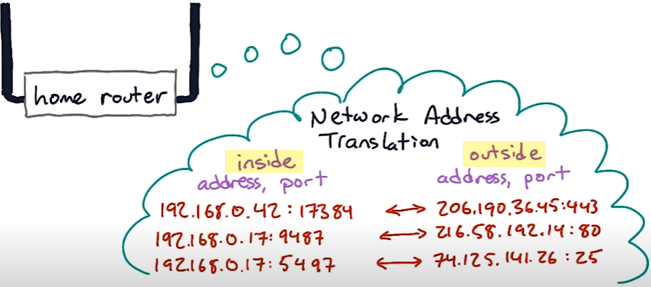 home router
Network Address
Translation
inside
outside
address, port
address, port
192.168.0.42:17384 ↔ 206.190.36.45:443
192.168.0.17:9487 ↔ 216.58.192.14:80
192.168.0.17:5497 ↔ 74.125.141.26:25